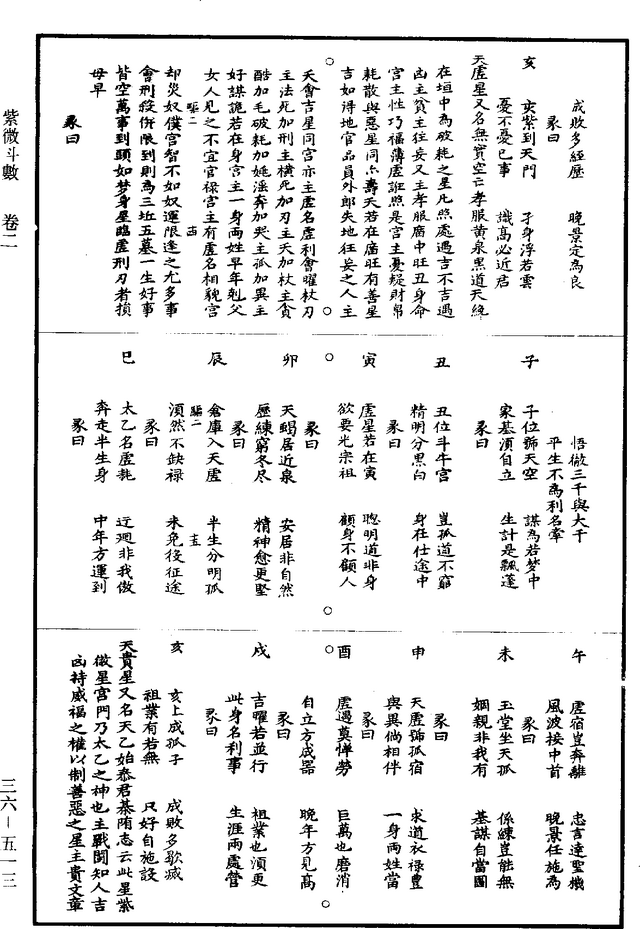 紫微斗數 卷二
三六—五一三
成敗多經歷 晚景定為良
彖曰
亥 爽紫到天門 孑身浮若雲
憂不憂己事 識高必近君
天虛星又名無實空亡孝服黃泉黑道天絕
在垣中為破耗之星凡照處遇吉不吉遇
凶主貧主狂妄又主孝服廟中旺丑身命
宮主性巧福薄虛誑照是宮主憂疑財帛
耗散與惡星同亦壽夭若在廟旺有善星
吉如得地官品員外郎失地狂妄之人主
夭會吉星同宮亦主虛名虛利會曜杖刃
主法死加刑主橫死加刃主夭加杖主貪
酷加毛破耗加姚淫奔加哭主孤加異主
好謀詭若在身宮主一身兩姓早年剋父
女人見之不宜官祿宮主有虛名相貌宮
却災奴僕宮智不如奴運限逢之尤多事
會刑殺併限到則為三坵五墓一生好事
皆空萬事到頭如梦身星臨虛刑刃者損
母早
彖曰
悟徹三千與大千
平生不為利名牽
子 子位號天空 謀為若梦中
家基須自立 生計是飄蓬
彖曰
丑 丑位斗牛宮 豈孤道不窮
精明分黑白 身在仕途中
彖曰
寅 虛星若在寅 聰明道非身
欲要光宗祖 顧身不顧人
彖曰
卯 天蝎居近泉 安居非自然
歷練窮冬尽 精神愈更堅
彖曰
辰 倉庫入天虛 半生分明孤
須然不缺祿 未免後征途
彖曰
巳 太乙名虛耗 迍邅非我傲
奔走半生身 中年方運到
彖曰
午 虛宿豈奔離 忠言達聖機
風波接中首 晚景任施為
彖曰
未 玉堂坐天孤 係練豈能無
姻親非我有 基謀自當圖
彖曰
申 天虛號孤宿 求道衣祿豊
與異倘相伴 一身兩姓當
彖曰
酉 虛遇莫憚勞 巨萬也磨消
自立方成器 晚年方見高
彖曰
戍 吉曜若並行 祖業也須更
此身名利事 生涯兩處營
彖曰
亥 亥上成孤子 成敗多歌戚
祖業有若無 只好自施設
天貴星又名天乙始泰君綦隋志云此星紫
微星宮門乃太乙之神也主戰鬪知人吉
凶持威福之權以制善惡之星主貴文章